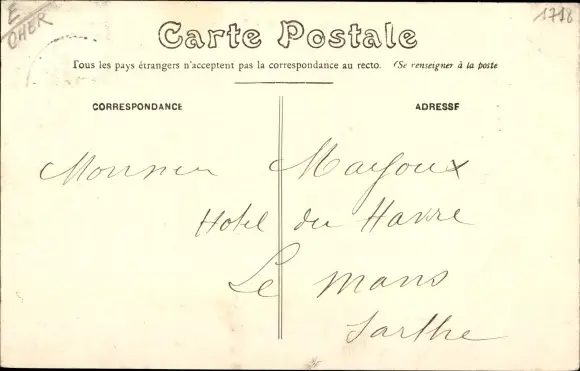 E
CHER
1718
Carte Postale
Tous les pays étrangers n'acceptent pas la correspondance au recto. (Se renseigner à la poste
CORRESPONDANCE
ADRESSE
Monsieur Mayoux
Hotel du Havre
Le Mans
Sarthe